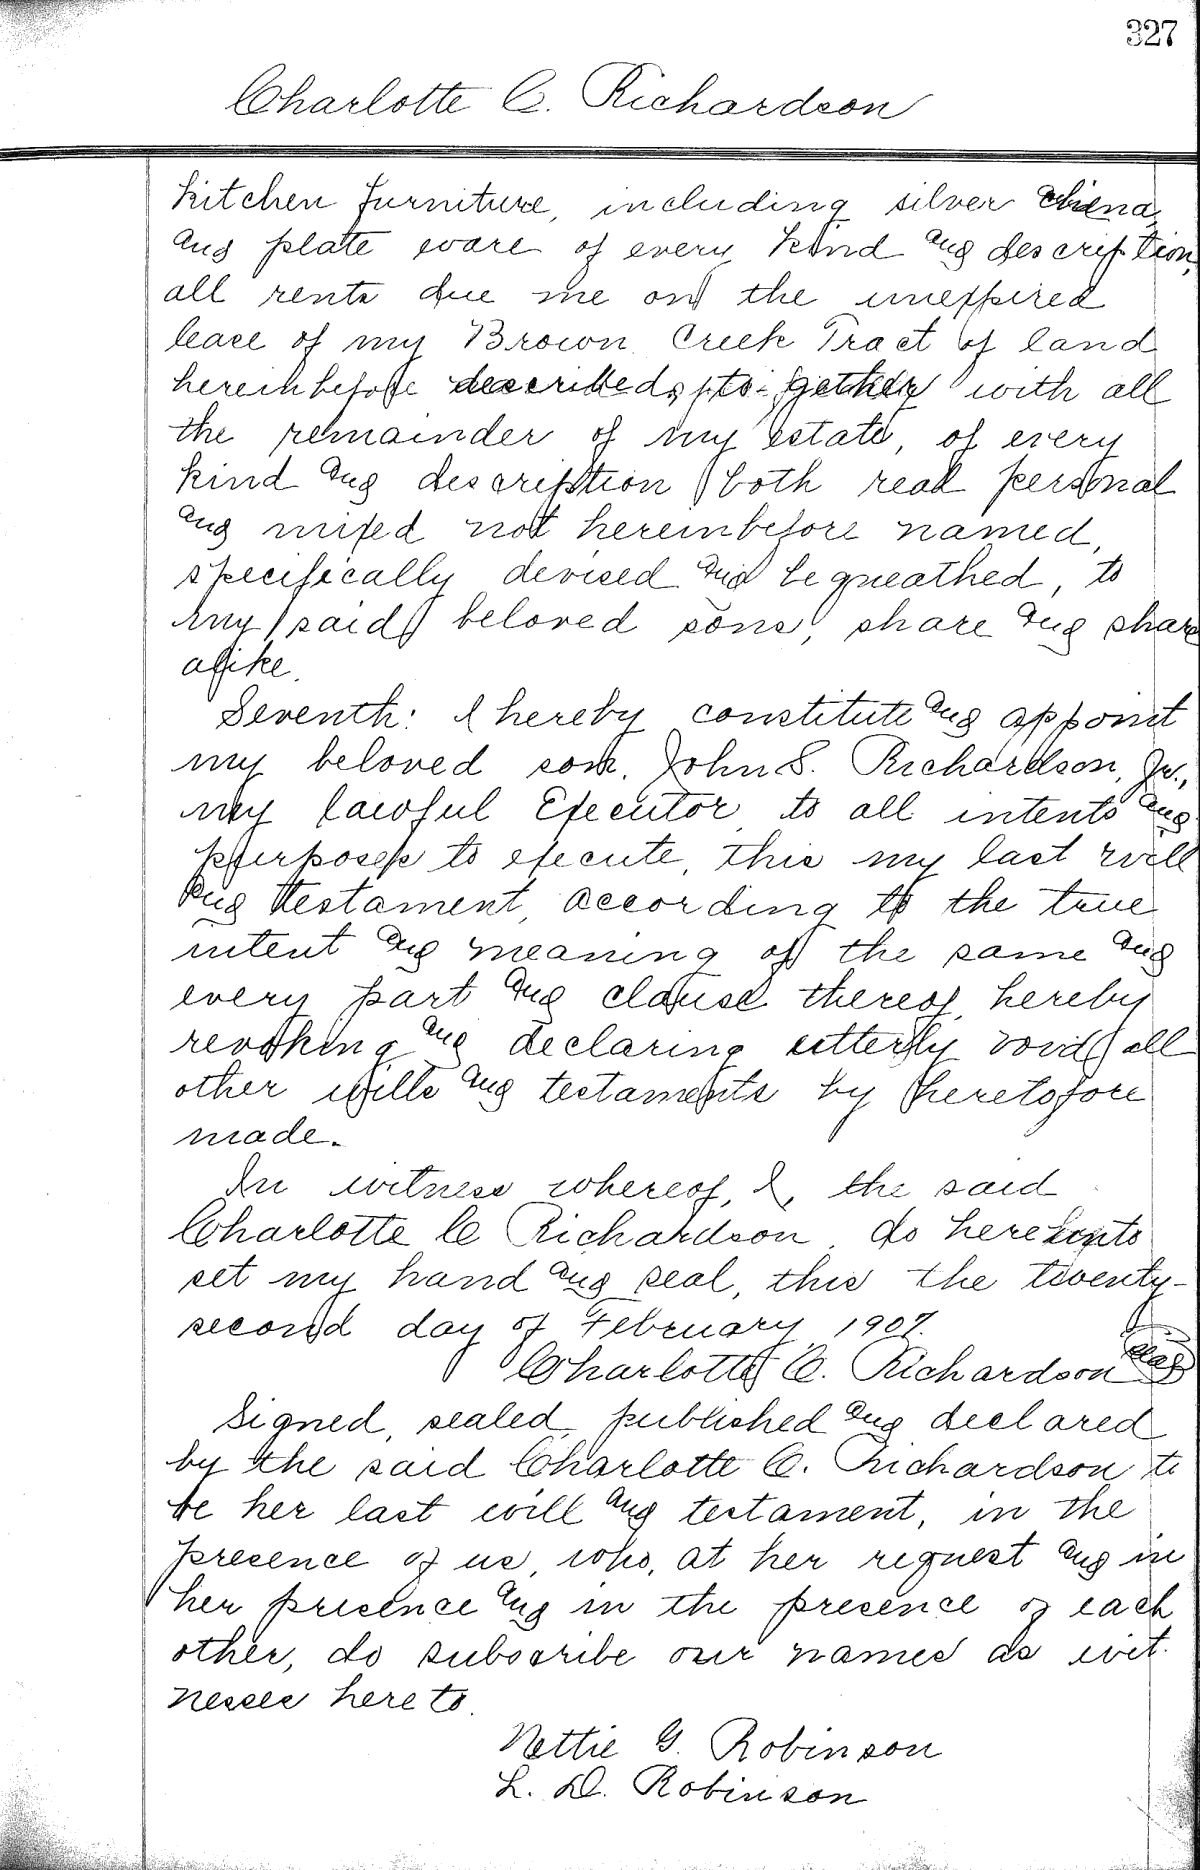 327
Charlotte C. Richardson
kitchen furniture, including silver china,
and plate ware of every kind and description,
all rents due me on the unexpired
lease of my Brown Creek Tract of land
hereinbefore described, to-gether with all
the remainder of my estate, of every
kind and description both real personal
and mixed not hereinbefore named,
specifically devised and bequeathed, to
my said beloved sons, share and share
alike.
Seventh: I hereby constitute and appoint
my beloved son, John S. Richardson, Jr.,
my lawful Executor to all intents and
purposes to execute, this my last will
and testament, according to the true
intent and meaning of the same and
every part and clause thereof, hereby
revoking and declaring utterly void all
other wills and testaments by heretofore
made.
In witness whereof, I, the said
Charlotte C Richardson do hereunto
set my hand and seal, this the twenty-
second day of February, 1907.
Charlotte C. Richardson Seal
Signed, sealed, published and declared
by the said Charlotte C. Richardson to
be her last will and testament, in the
presence of us, who, at her request and in
her presence and in the presence of each
other, do subscribe our names as wit-
nesses hereto.
Nettie G. Robinson
L. D. Robinson